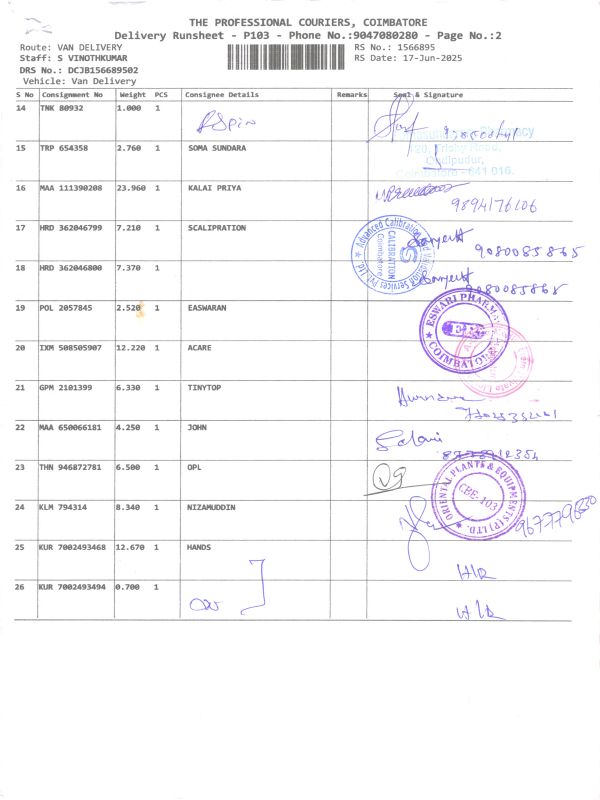 THE PROFESSIONAL COURIERS, COIMBATORE
Delivery Runsheet - P103 - Phone No.:9047080280 - Page No.:2
Route: VAN DELIVERY
RS No.: 1566895
Staff: S VINOTHKUMAR
RS Date: 17-Jun-2025
DRS No.: DCJB156689502
Vehicle: Van Delivery
S No Consignment No Weight PCS Consignee Details Remarks Seal & Signature
14 TNK 80932 1.000 1
15 TRP 654358 2.760 1 SOMA SUNDARA
Trichy Road,
Ondipudur,
Coimbatore - 641 016.
16 MAA 111390208 23.960 1 KALAI PRIYA
9894176106
17 HRD 362046799 7.210 1 SCALIPRATION
9080085865
Advanced Calibration and Validation Services Pvt. Ltd.
CALIBRATION
Coimbatore
18 HRD 362046800 7.370 1
9080085865
19 POL 2057845 2.520 1 EASWARAN
ESWARI PHARMA
COIMBATORE
20 IXM 508505907 12.220 1 ACARE
21 GPM 2101399 6.330 1 TINYTOP
22 MAA 650066181 4.250 1 JOHN
23 THN 946872781 6.500 1 OPL
ORIENTAL PLANTS & EQUIPMENTS (P) LTD.
CBE-103
24 KLM 794314 8.340 1 NIZAMUDDIN
25 KUR 7002493468 12.670 1 HANDS
H/R
26 KUR 7002493494 0.700 1
H/R